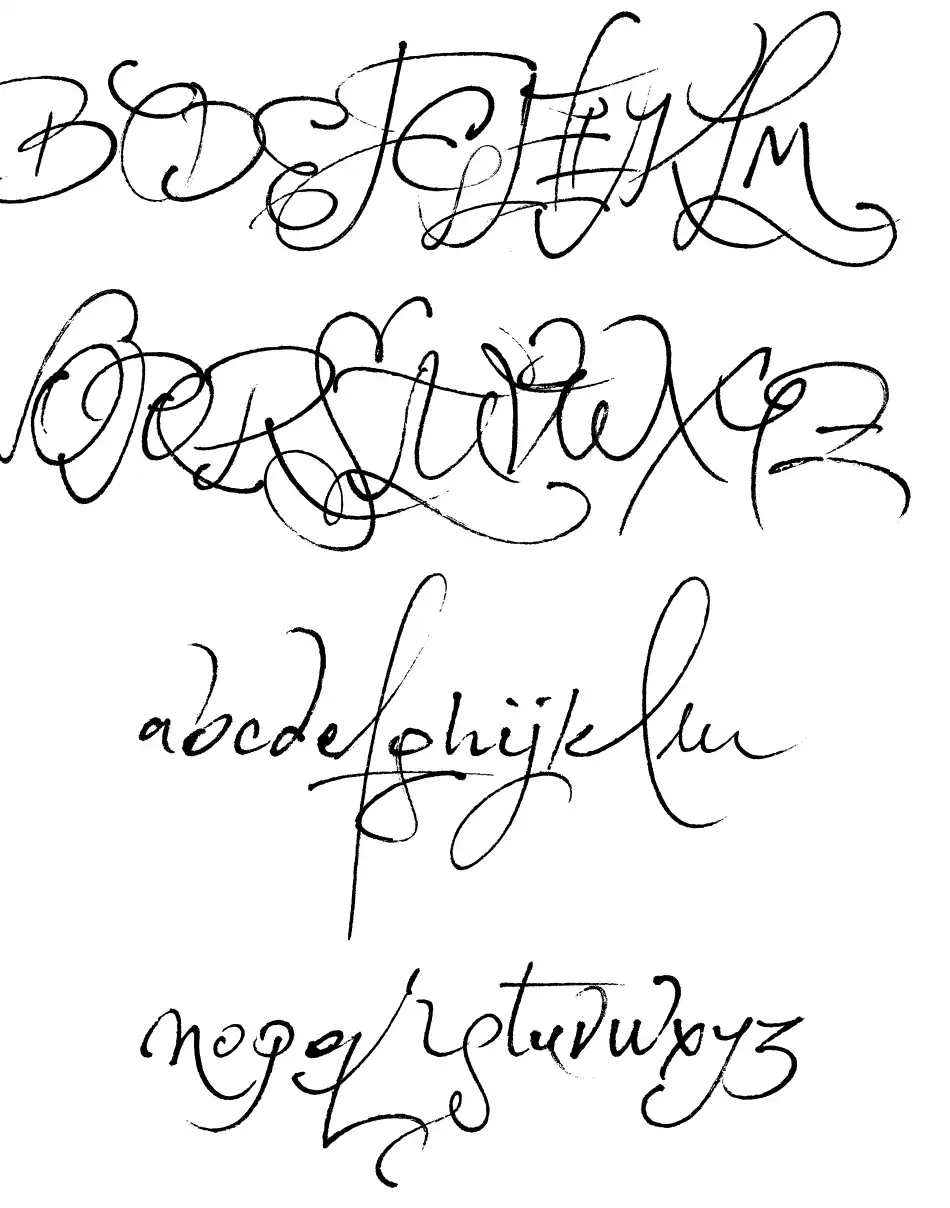 BCDEFGHIJKLM
NOPQRSTUVWXYZ
abcdefghijklm
nopqrstuvwxyz